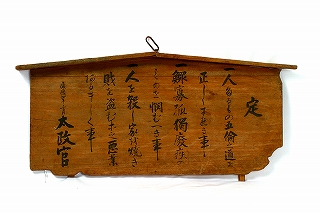 定
一人たるもの五倫の道を
正しくすへき事
一鰥寡孤獨癈疾の
ものを憫むへき事
一人を殺し家を焼き
財を盗む等之惡業
あるましく事
太政官